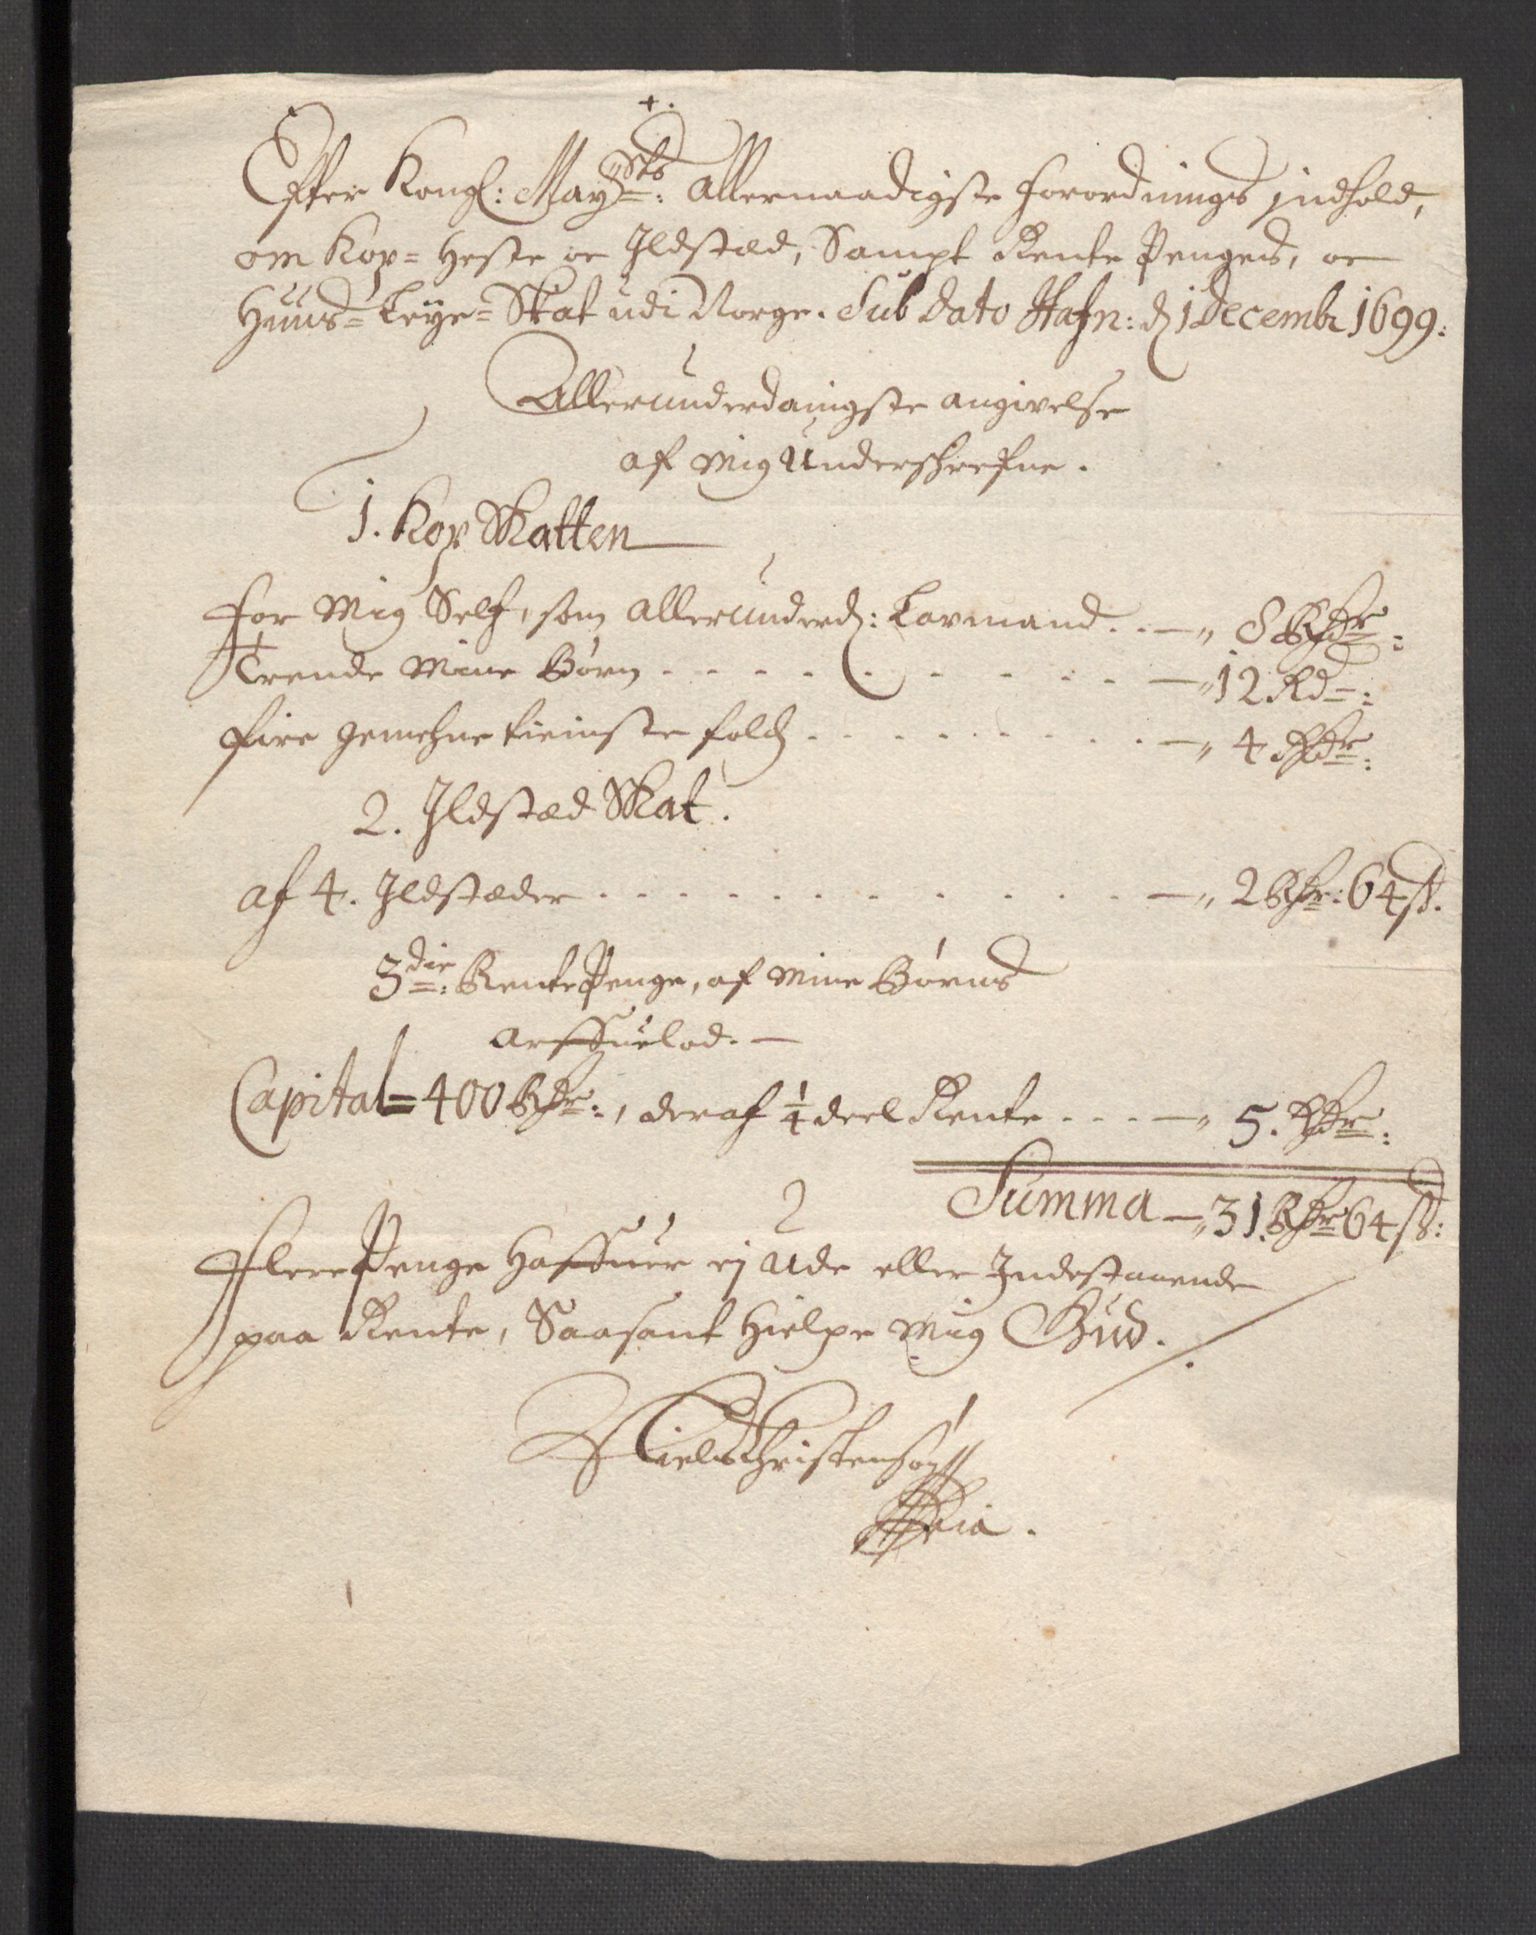 +.
Efter Kongl: May:sts: Allernaadigste forordnings indhold,
om Kop= Heste oc Ildstæd, Sampt Rente Penges, oc
Huus= Leye= Skat udi Norge. Sub Dato Hafn: d 1 Decembr 1699:
Allerunderdanigste angivelse
af Mig Underschrefne.
1. Kop Skatten
For Mig Self, som allerunderd: Lavmand. . — " 8 Rdr:
Trende Mine Børn . . . . . . . . — " 12 Rd:
Fire gemehne tieniste folch . . . . . . . . — " 4 Rdr:
2. Ildstæd Skat.
af 4. Ildstæder . . . . . . . . . . — " 2 Rdr: 64 ß.
3die: Rente Penge, af Mine Børns
arffuelod. —
Capital= 400 Rdr:, deraf 1/4 deel Rente . . . . — " 5. Rdr:
Summa — " 31. Rdr 64 ß:
Flere Penge Haffuer ej Ude eller Indestaaende
paa Rente, Saasant Hielpe Mig Gud.
Niels Christensøn